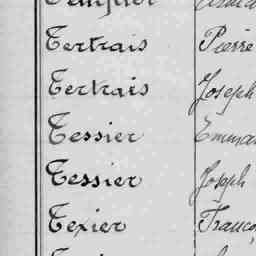 Tertrais Pierre
Tertrais Joseph
Tessier
Tessier Joseph
Texier